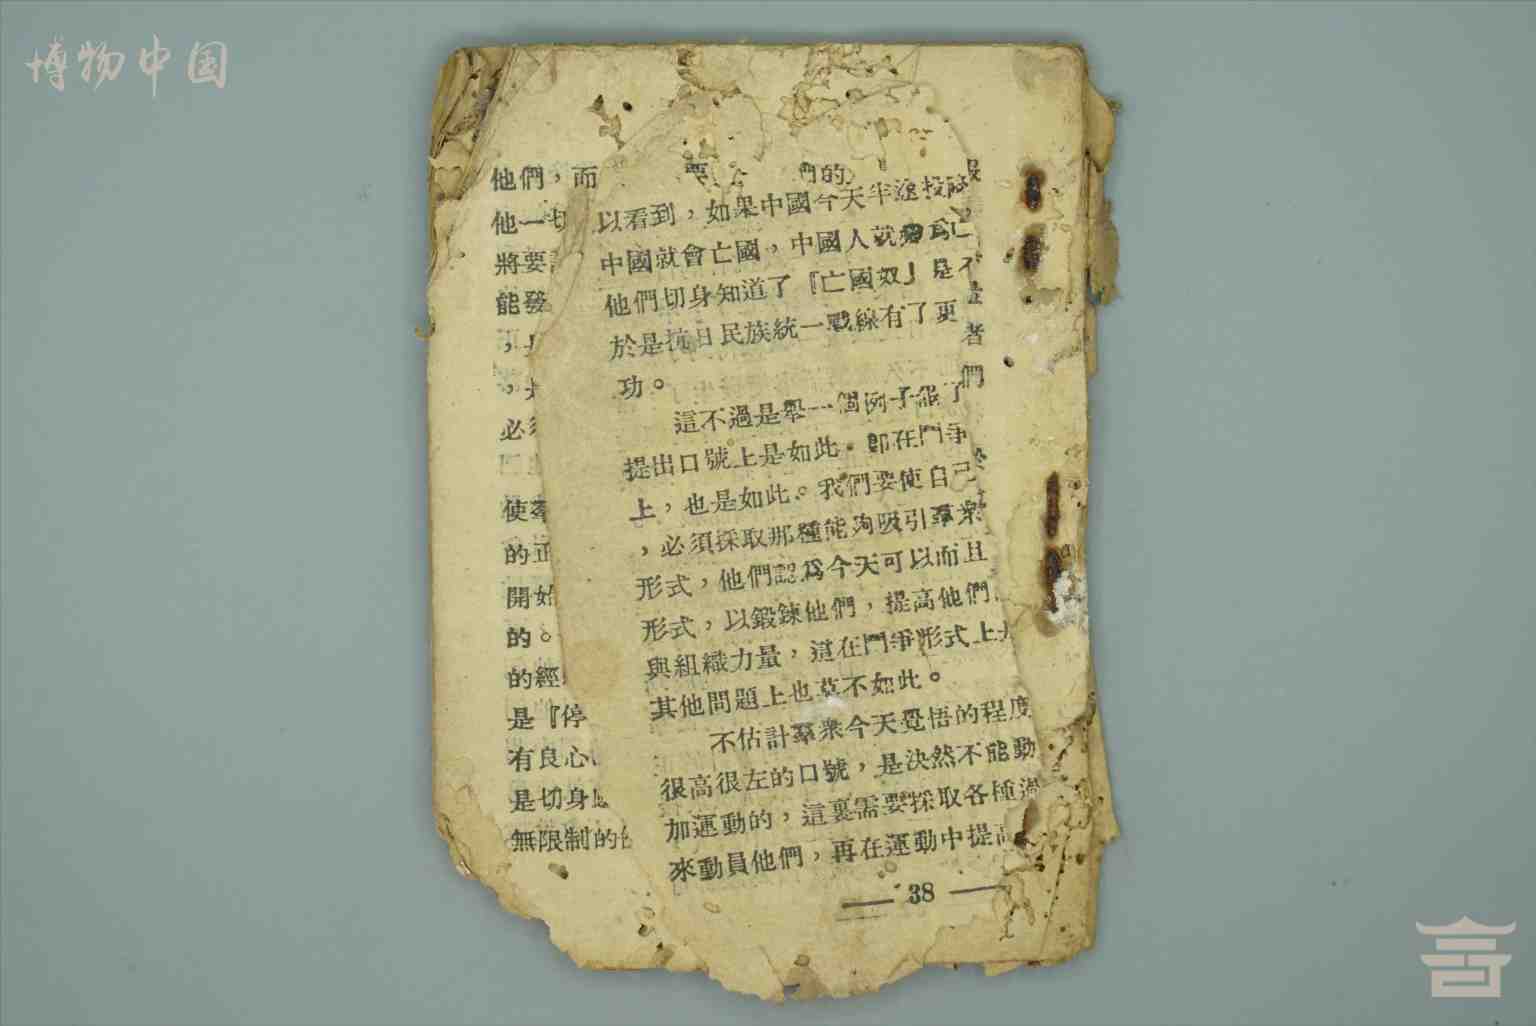 博物中国
他們，而
要
們的
他一切
將要
能發
必須
使羣
的正
開始
的。
的經
是『停
有良心
是切身
無限制的
者
們
以看到，如果中國今天半途投降
中國就會亡國，中國人就
他們切身知道了『亡國奴』是不
於是抗日民族統一戰線有了更
功。
這不過是舉一個例子罷了
提出口號上是如此。卽在鬥爭
上，也是如此。我們要使自己
，必須採取那種能夠吸引羣衆
形式，他們認爲今天可以而且
形式，以鍛鍊他們，提高他們
與組織力量，這在鬥爭形式上
其他問題上也莫不如此。
不估計羣衆今天覺悟的程度
很高很左的口號，是決然不能動
加運動的，這裏需要採取各種過
來動員他們，再在運動中提高
— 38 —